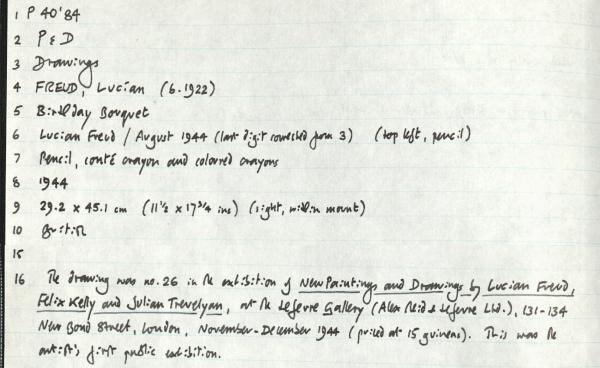 1 P 40'84
2 P & D
3 Drawings
4 FREUD, Lucian (b.1922)
5 Birthday Bouquet
6 Lucian Freud / August 1944 (last digit corrected from 3) (top left, pencil)
7 Pencil, conté crayon and coloured crayons
8 1944
9 29.2 x 45.1 cm (11½ x 17¾ ins) (sight, within mount)
10 British
15
16 The drawing was no.26 in the exhibition of New Paintings and Drawings by Lucian Freud,
Felix Kelly and Julian Trevelyan, at the Lefevre Gallery (Alex Reid & Lefevre Ltd.), 131-134
New Bond Street, London, November-December 1944 (priced at 15 guineas). This was the
artist's first public exhibition.